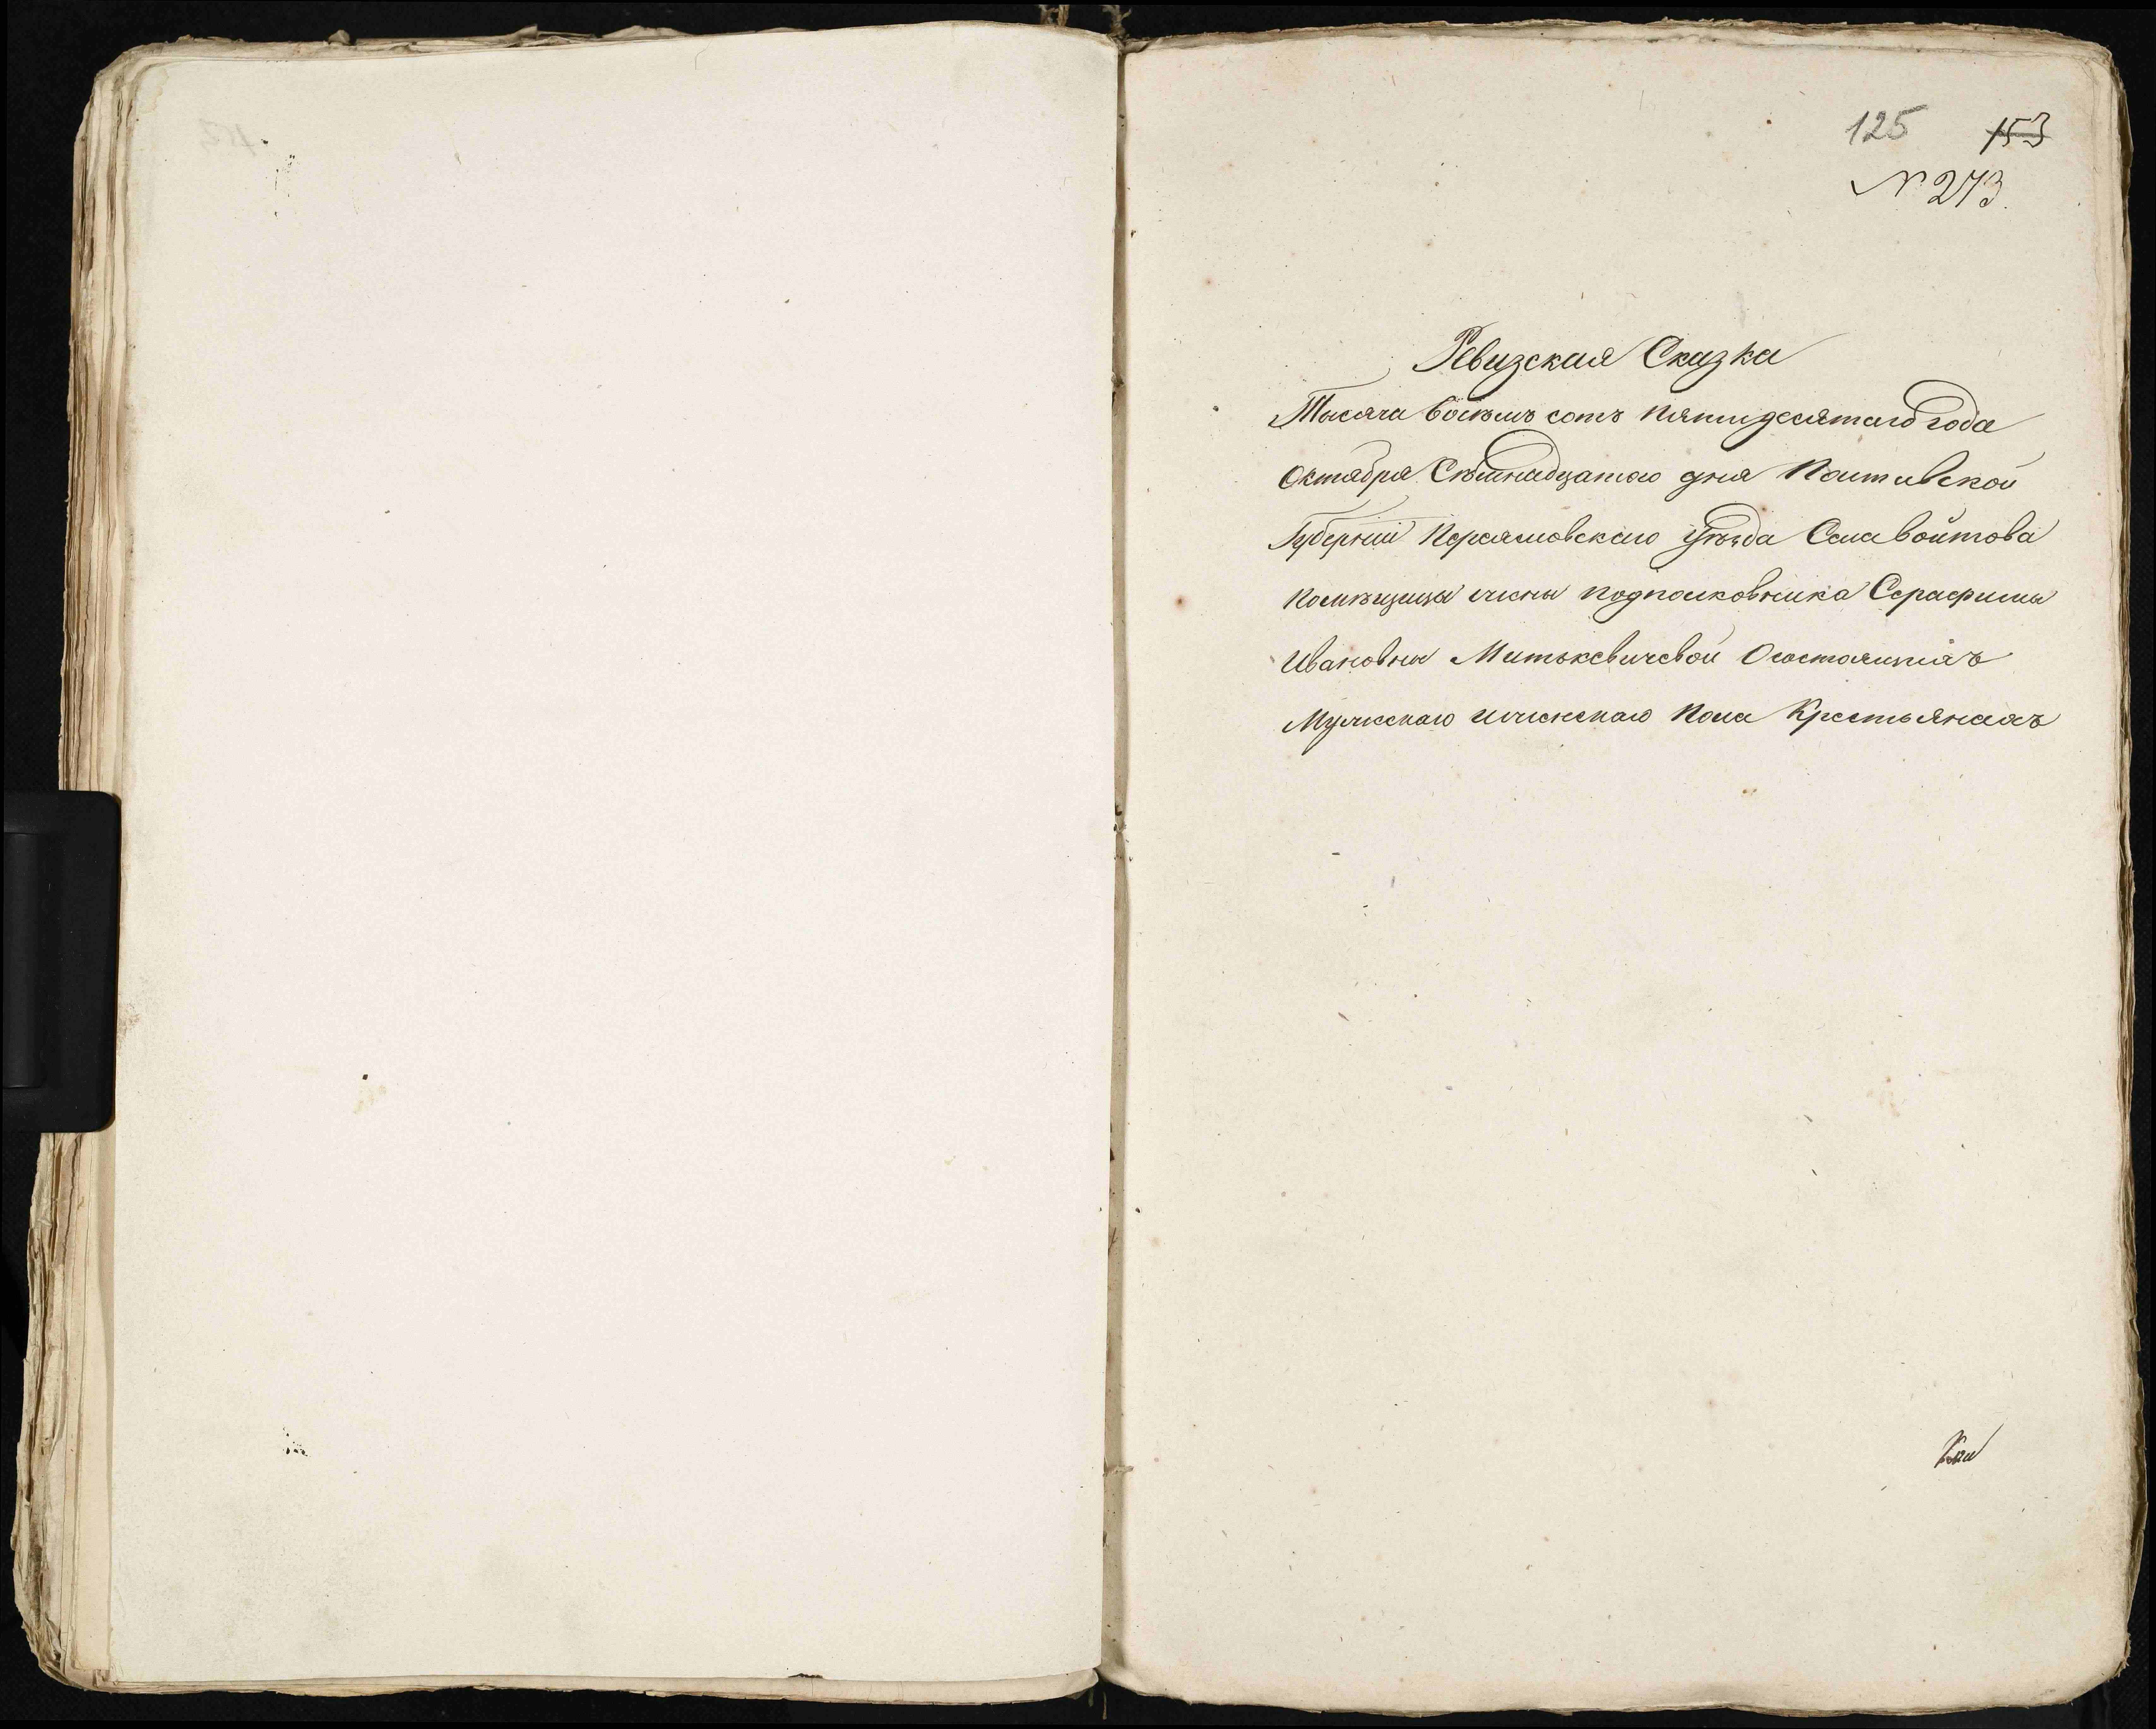 125 153
№ 273.
Ревизская Сказка
Тысяча восѣмъ сотъ пятидесятаго года
Октября Сѣмнадцатаго дня Полтавской
Губерніи Переяславскаго уѣзда Села Войтова
помѣщицы жены подполковника Серафимы
Ивановны Митькевичевой О состоящихъ
Мужескаго и женскаго пола Крестьянахъ